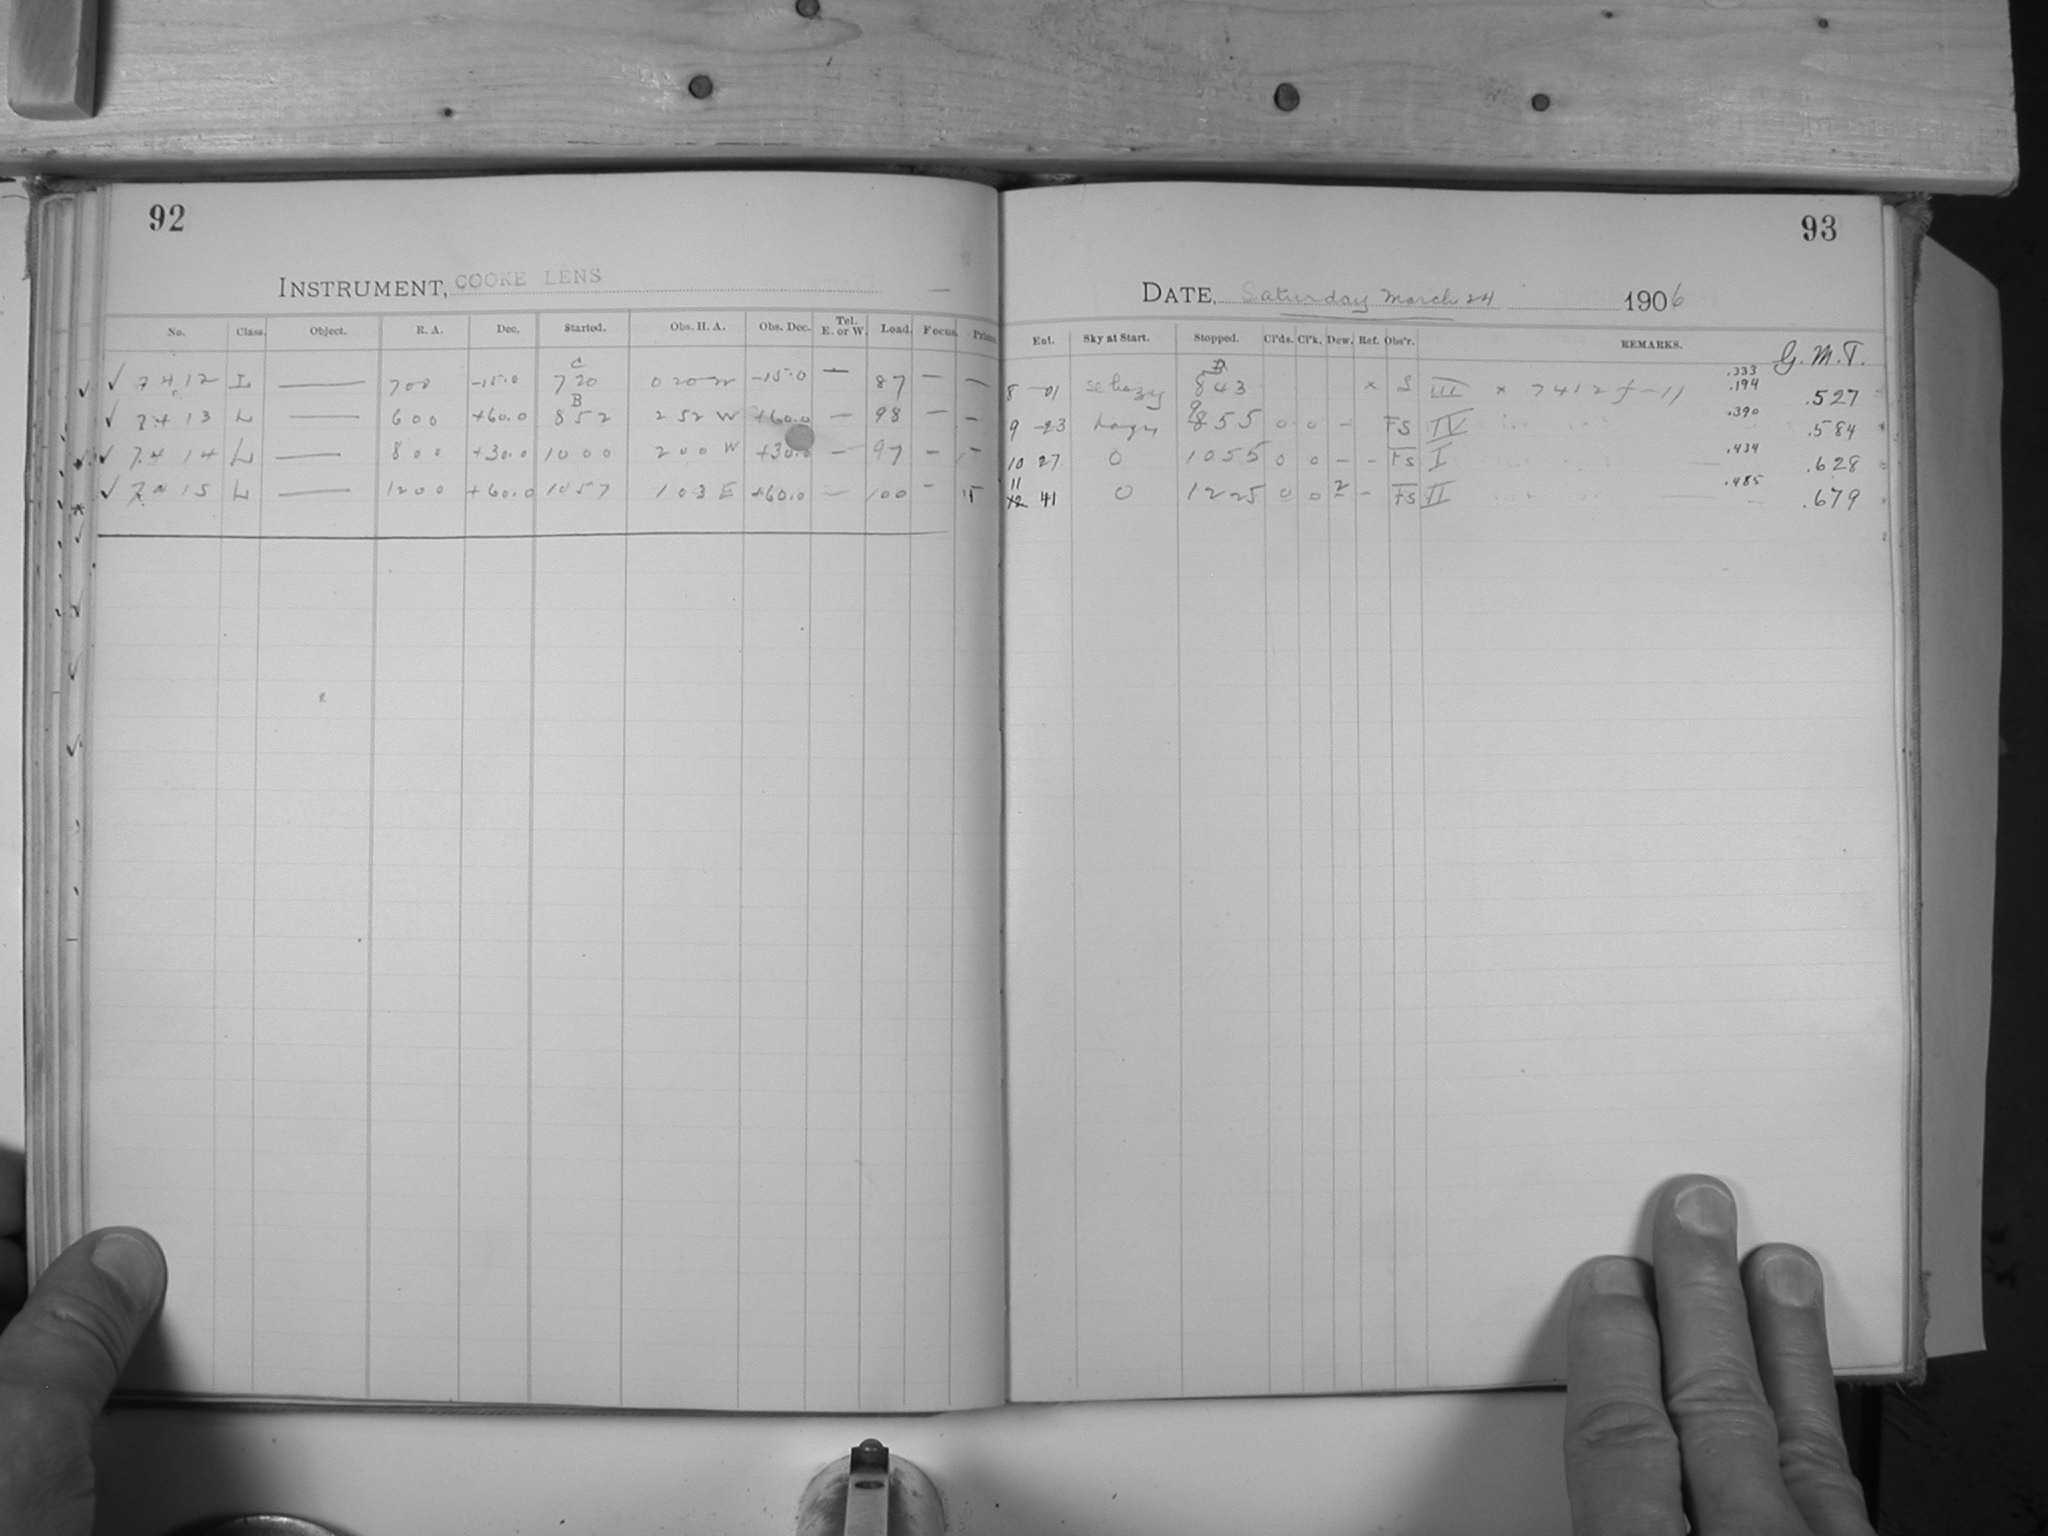 92
INSTRUMENT, COOKE LENS
No. Class. Object. R. A. Dec. Started. Obs. H. A. Obs. Dec. Tel. E. or W. Load. Focus. Prisms.
C
✓ 7412 L — 700 -15.0 720 0 20 W -15.0 — 87 — —
B
✓ 7413 L — 600 +60.0 852 2 52 W +60.0 — 98 — —
✓ 7414 L — 800 +30.0 1000 2 00 W +30.0 — 97 — —
✓ 7415 L — 1200 +60.0 1057 1 03 E +60.0 — 100 —
93
DATE, Saturday March 24 1906
Ent. Sky at Start. Stopped. Cl'ds. Cl'k. Dew. Ref. Obs'r. REMARKS. G. M. T.
B .333
8 01 se hazy 843 × S III × 7412 f-11 .194 .527
9 23 hazy 955 0 0 — FS IV .390 .584
10 27 0 1055 0 0 — — FS I .434 .628
11 41 0 1225 0 0 2 — FS II .485 .679